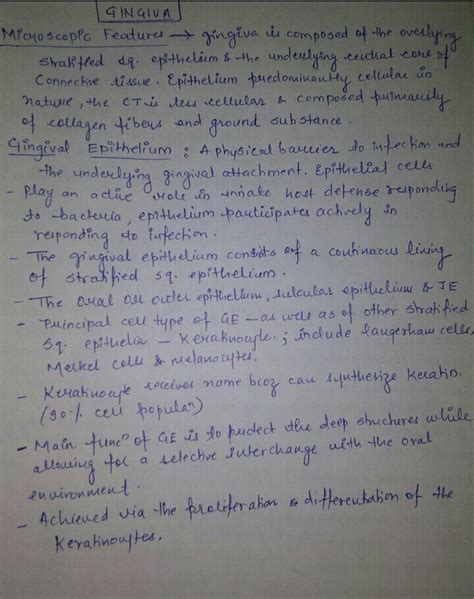 GINGIVA
Microscopic Features → gingiva is composed of the overlying
stratified sq. epithelium & the underlying central core of
Connective tissue. Epithelium predominantly cellular in
nature, the CT is less cellular & composed primarily
of collagen fibers and ground substance.
Gingival Epithelium : A physical barrier to infection and
the underlying gingival attachment. Epithelial cells
- Play an active role in innate host defense responding
to bacteria, epithelium participates actively in
responding to infection.
- The gingival epithelium consists of a continuous lining
of stratified sq. epithelium.
- The oral or outer epithelium, sulcular epithelium & JE
- Principal cell type of GE - as well as of other stratified
sq. epithelia - Keratinocyte. ; include langerhan cells,
Merkel cells & melanocytes.
- Keratinocyte receives name bcoz can synthesize Keratin.
(90% cell populan)
- Main funcn of GE is to protect the deep structures while
allowing for a selective interchange with the oral
environment.
- Achieved via the proliferation & differentiation of the
Keratinocytes.